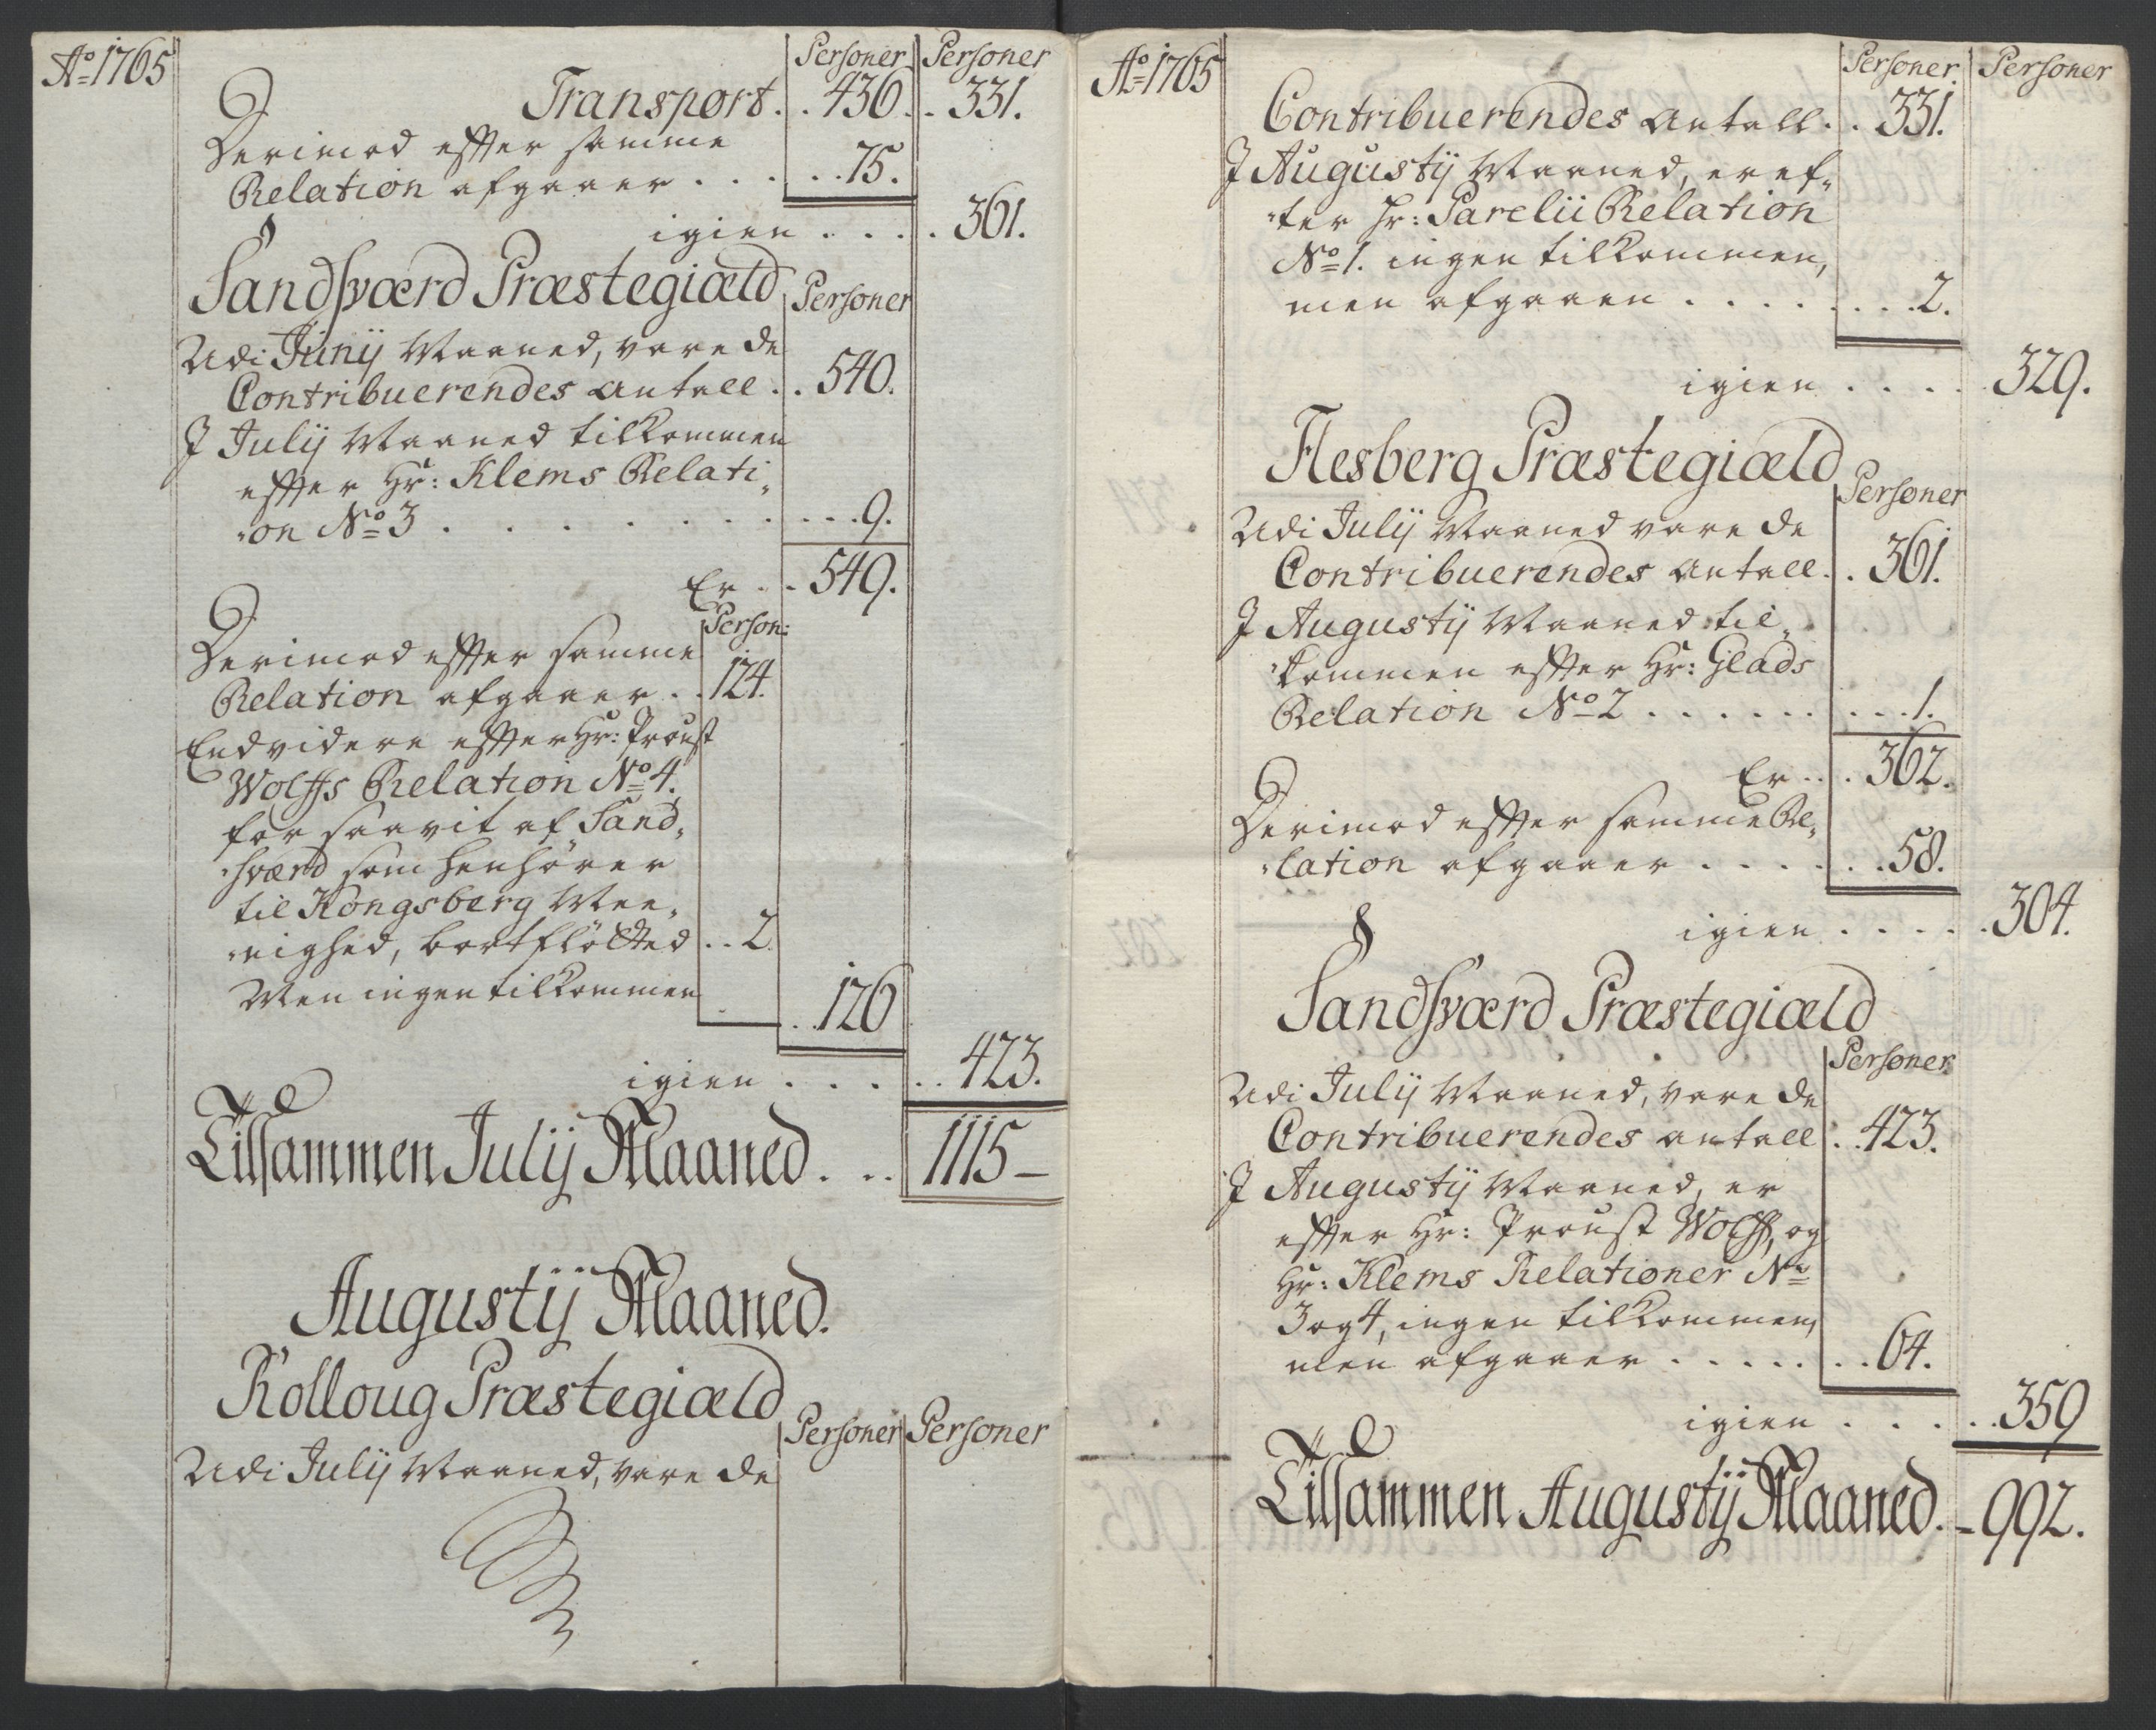 Aº 1765
Personer Personer
Transport . . 436 . . 331.
Derimod efter samme
Relation afgaaer . . . . . 75.
igien . . . . 361.
Sandsværd Præstegiæld
Personer
Udi Junij Maaned, vare de
Contribuerendes antall . . 540.
J Julij Maaned tilkommen
efter Hr: Klems Relati-
-on Nº 3 . . . . . . . . . . 9.
Er . . 549.
Person:
Derimod efter samme
Relation afgaaer . . 124.
Endvidere efter Hr: Proust
Wolffs Relation Nº 4.
for saavit af Sand-
-sværd som henhører
til Kongsberg Mee-
-nighed, bortflötted . . 2.
Men ingen tilkommen
. . 126
igien . . . . . 423.
Tilsammen Julij Maaned . . . 1115 —
Augustij Maaned.
Kolloug Præstegiæld
Personer Personer
Udi Julij Maaned, vare de
Aº 1765
Personer Personer
Contribuerendes antall . . 331.
J Augustij Maaned, er ef-
-ter Hr: Parelii Relation
Nº 1. ingen tilkommen,
men afgaaen . . . . . . . . 2.
igien . . . . . 329.
Flesberg Præstegiæld
Personer
Udi Julij Maaned vare de
Contribuerendes antall . . 361.
J Augustij Maaned til-
-kommen efter Hr: Glads
Relation Nº 2 . . . . . . . . . 1.
Er . . . 362.
Derimod efter samme Re-
-lation afgaaer . . . . . . 58.
igien . . . . . 304.
Sandsværd Præstegiæld
Personer
Udi Julij Maaned, vare de
Contribuerendes antall . . 423.
J Augustij Maaned, er
efter Hr: Proust Wolff, og
Hr: Klems Relationer Nº
3 og 4, ingen tilkommen,
men afgaaer . . . . . . . 64.
igien . . . . . 359
Tilsammen Augustij Maaned. - 992.